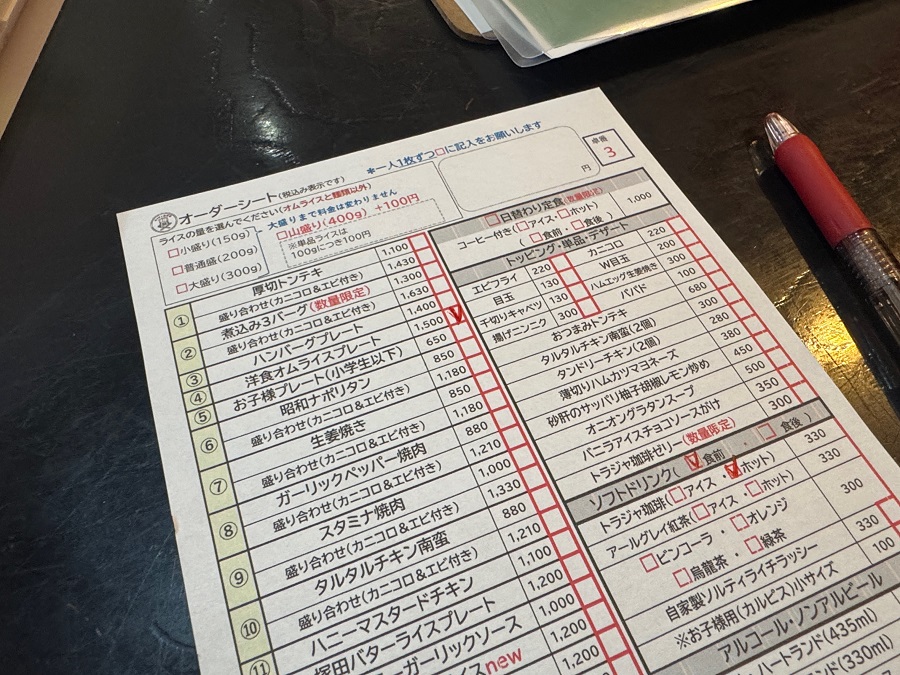 オーダーシート(税込み表示です)
*一人1枚ずつ□に記入をお願いします
卓番
3
円
ライスの量を選んでください(オムライスと種類以外)
□小盛り(150g)
□普通盛(200g)
□大盛り(300g)
大盛りまで料金は変わりません
□山盛り(400g) +100円
※単品ライスは
100gにつき100円
① 厚切トンテキ 1,100
盛り合わせ(カニコロ&エビ付き) 1,430
② 煮込み3バーグ(数量限定) 1,300
盛り合わせ(カニコロ&エビ付き) 1,630
③ ハンバーグプレート 1,400
④ 洋食オムライスプレート 1,500
⑤ お子様プレート(小学生以下) 650
⑥ 昭和ナポリタン 850
盛り合わせ(カニコロ&エビ付き) 1,180
⑦ 生姜焼き 850
盛り合わせ(カニコロ&エビ付き) 1,180
⑧ ガーリックペッパー焼肉 880
盛り合わせ(カニコロ&エビ付き) 1,210
⑨ スタミナ焼肉 1,000
盛り合わせ(カニコロ&エビ付き) 1,330
⑩ タルタルチキン南蛮 880
盛り合わせ(カニコロ&エビ付き) 1,210
⑪ ハニーマスタードチキン 1,100
塚田バターライスプレート 1,200
ーガーリックソース 1,000
イスnew 1,200
1,200
□日替わり定食(数量限定) 1,000
コーヒー付き(□アイス・□ホット)
(□食前・□食後)
トッピング・単品・デザート
エビフライ 220 カニコロ 220
目玉 130 W目玉 200
千切りキャベツ 130 ハムエッグ生姜焼き 300
揚げニンニク 300 パパド 100
おつまみトンテキ 680
タルタルチキン南蛮(2個) 300
タンドリーチキン(2個) 280
薄切りハムカツマヨネーズ 380
砂肝のサッパリ柚子胡椒レモン炒め 450
オニオングラタンスープ 500
バニラアイスチョコソースがけ 350
トラジャ珈琲ゼリー(数量限定) 300
ソフトドリンク(□食前・□食後)
トラジャ珈琲(□アイス・□ホット) 330
アールグレイ紅茶(□アイス・□ホット) 330
□ピンコーラ・□オレンジ
□烏龍茶・□緑茶 300
自家製ソルティライチラッシー 330
※お子様用(カルピス)小サイズ 100
アルコール・ノンアルビール
ハートランド(435ml)
ンド(330ml)